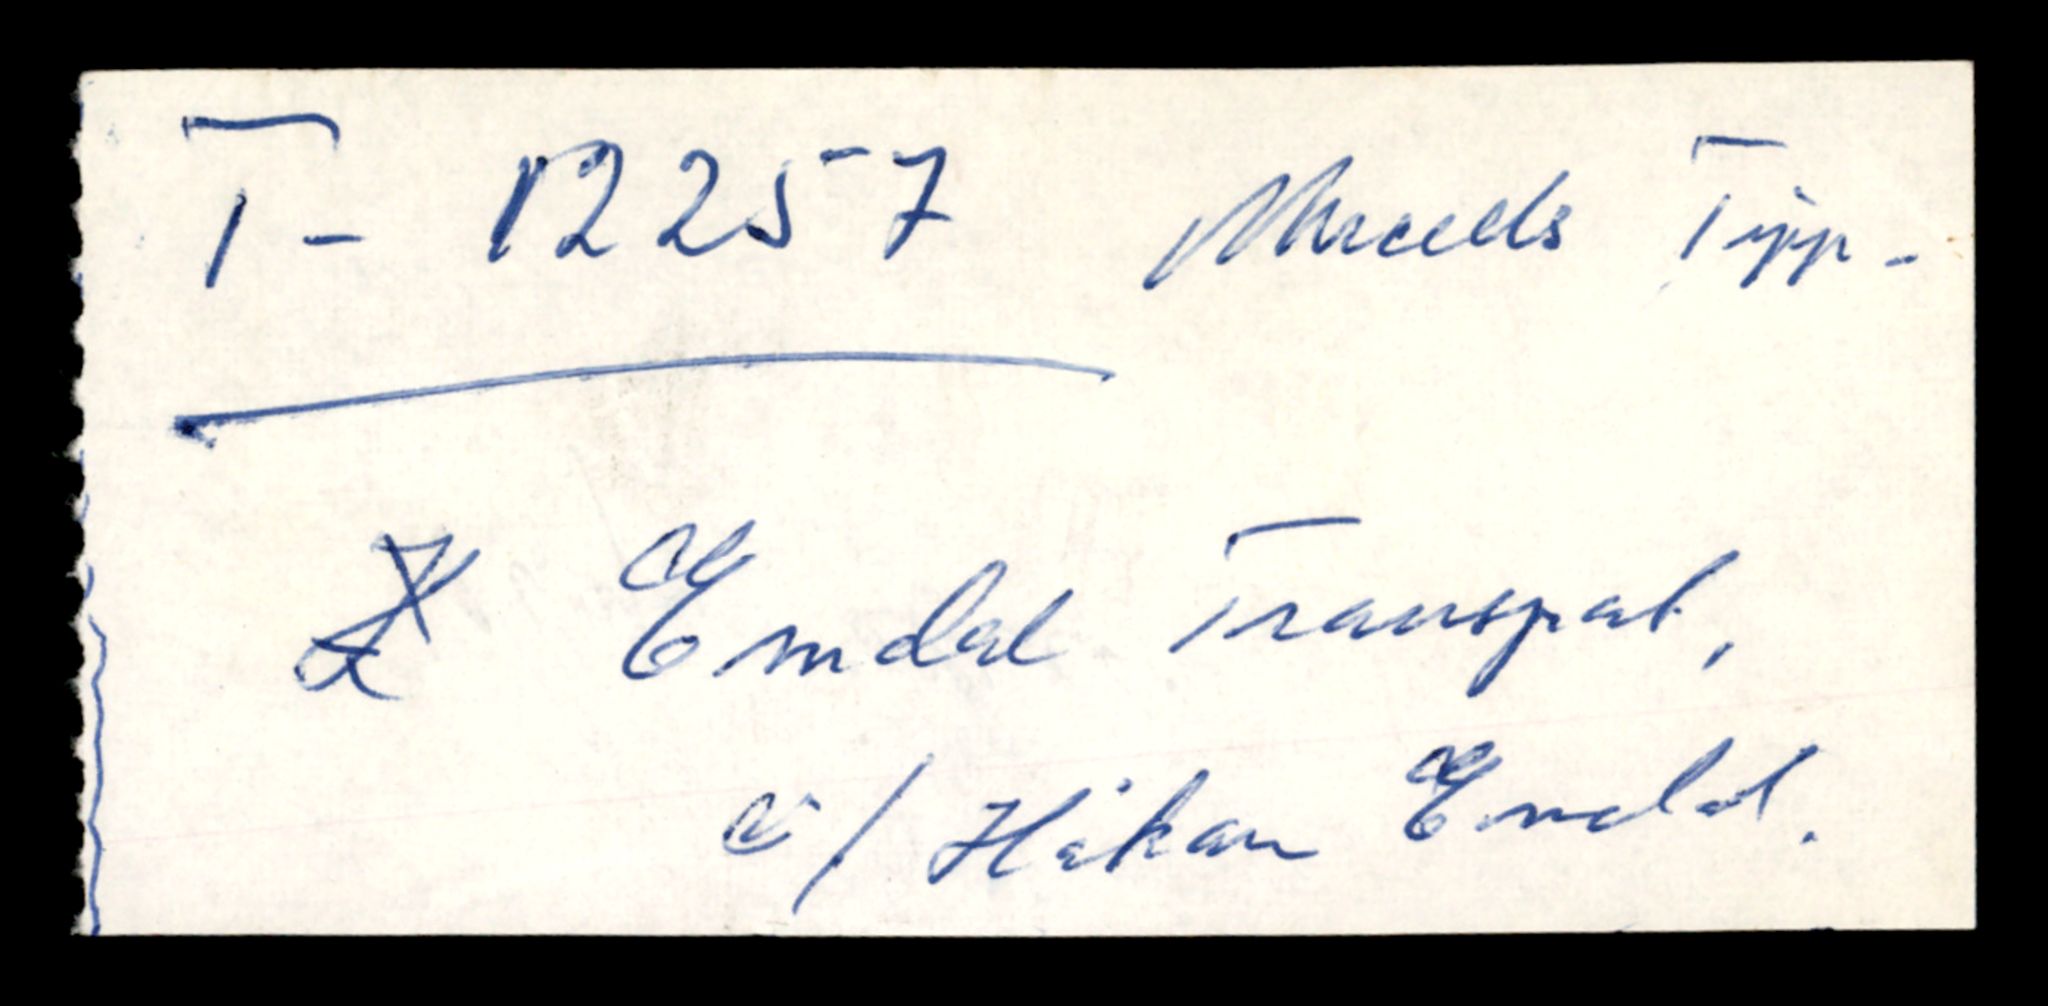 T- 12257 Mercedes Tipp-
Emdal Transport,
v/ Håkon Emdal.